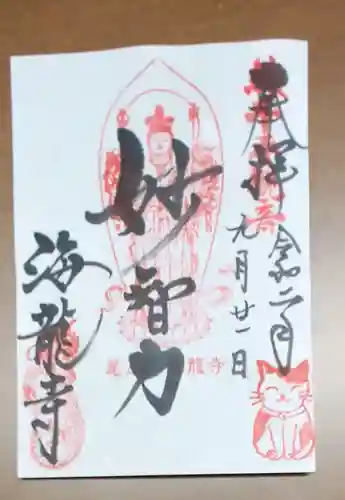 奉拝
令和二年
九月廿一日
妙智力
海龍寺
龍寺